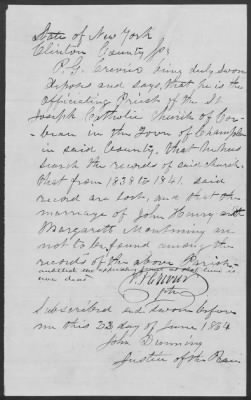 State of New York
Clinton County ss
P. G. Crevier being duly sworn
deposes and says, that he is the
officiating Priest of the St.
Joseph Catholic Church of Cor-
beau in the Town of Champlain
in said County, that he has
the records of said church,
that from 1838 to 1841. said
record are lost, and that the
marriage of John Henry with
Margarett Montminy are
not to be found among the
records of the above Parish
Crevier
Subscribed and sworn before
me this 23 day of June 1864
John Dunning
Justice of the Peace